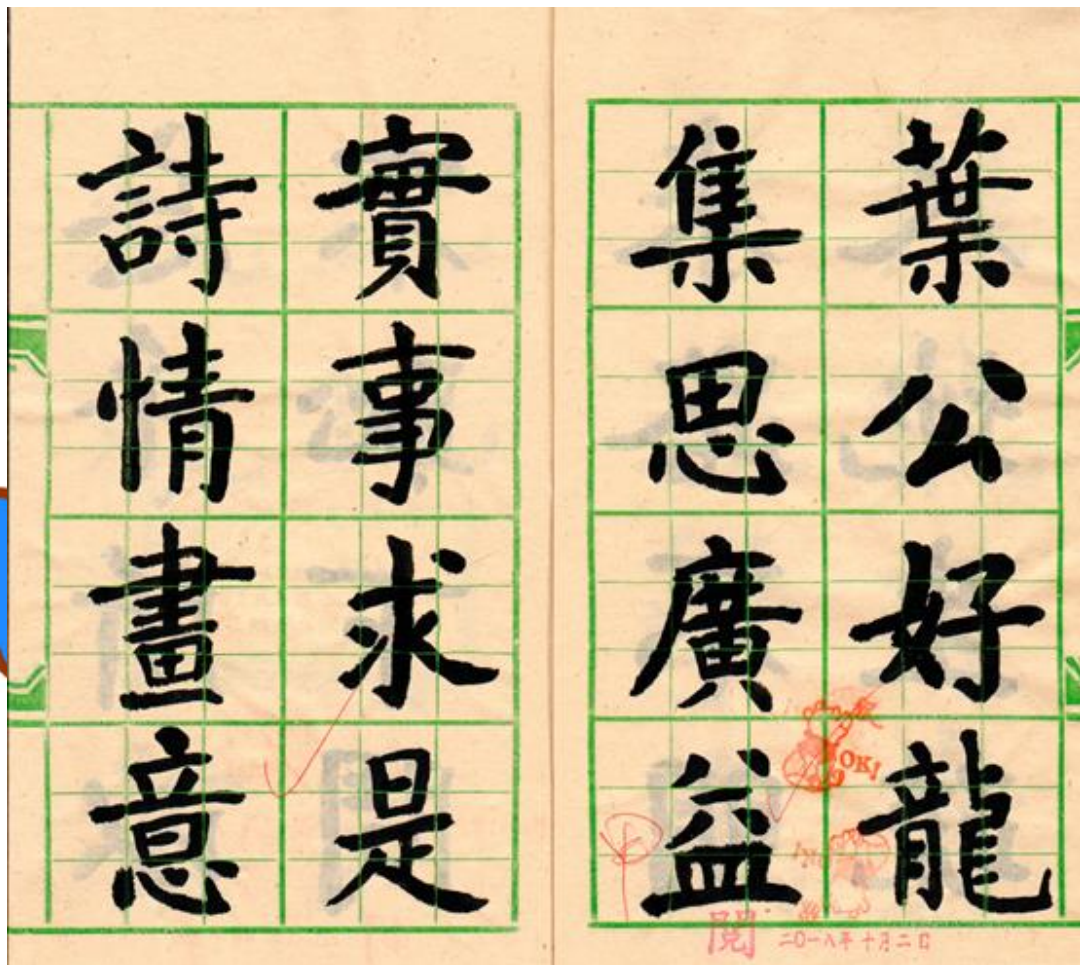 葉公好龍
集思廣益
實事求是
詩情畫意
OKI
閱
二〇一八年十月二日